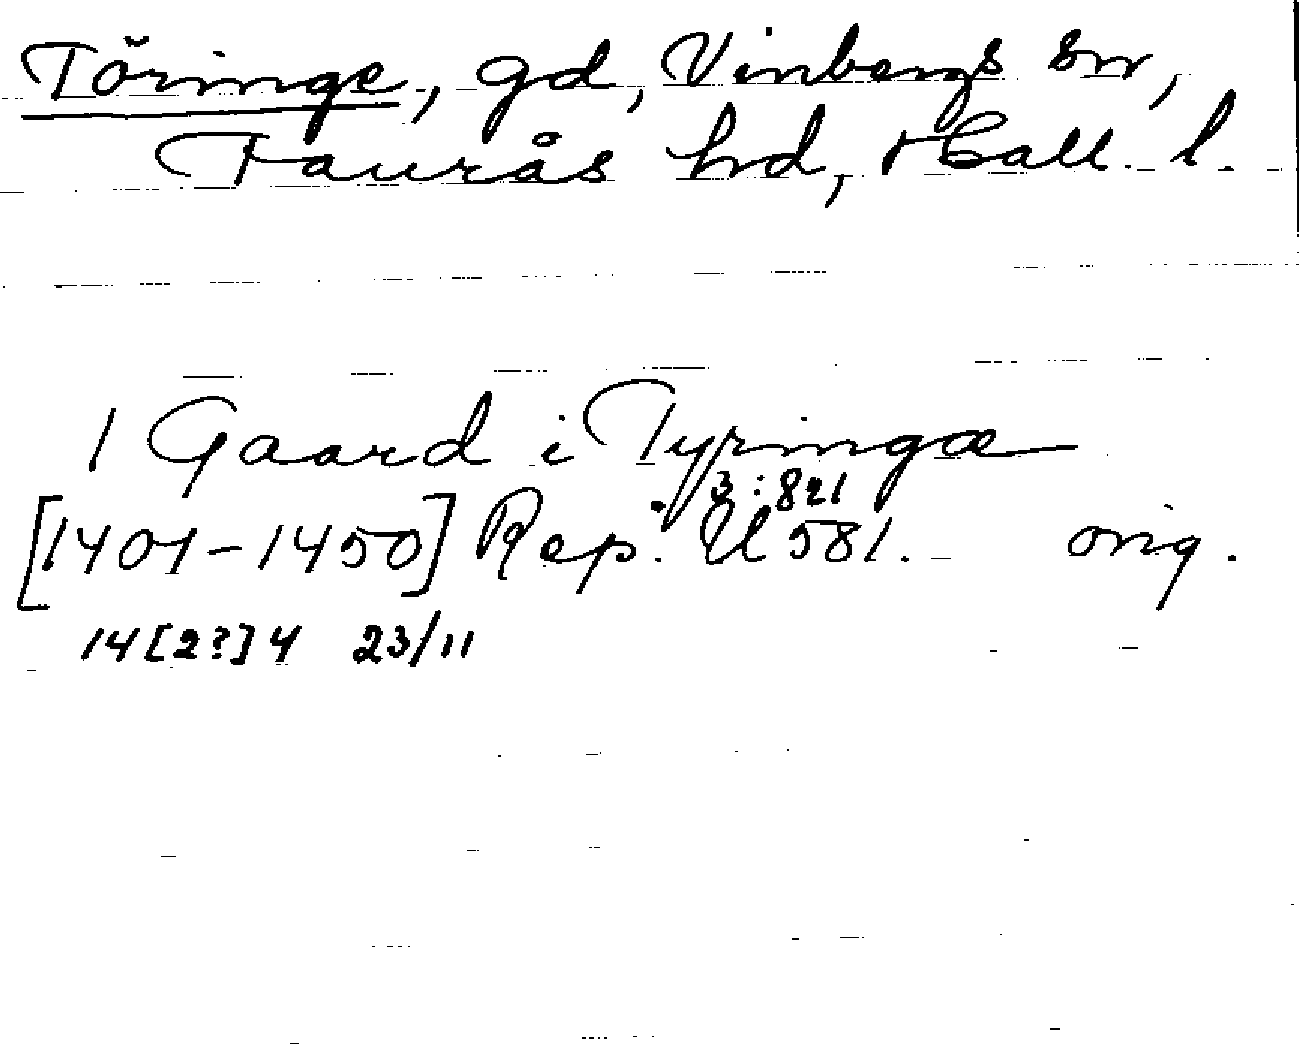 Töringe, gd, Vinbergs sn,
Faurås hd, Hall. l.
1 Gaard i Tyringæ
3:821
[1401-1450] Rep. II 581. orig.
14[2?]4 23/11